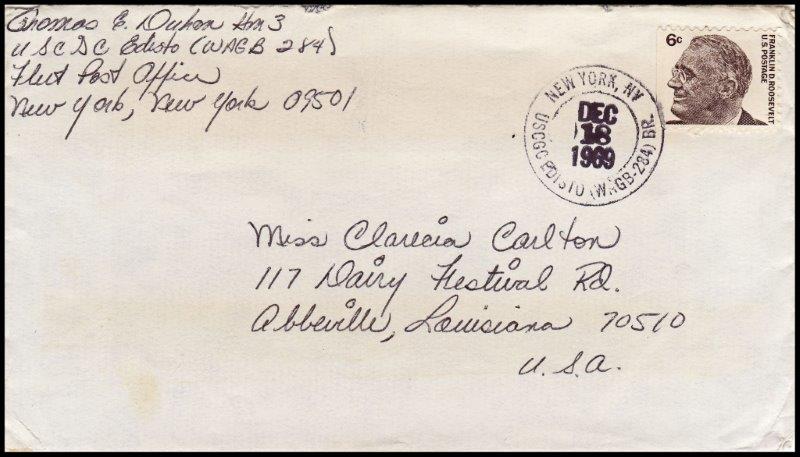 Thomas E. Duhon Hm3
USCGC Edisto (WAGB 284)
Fleet Post Office
New York, New York 09501
6c
FRANKLIN D. ROOSEVELT
U.S. POSTAGE
NEW YORK, NY BR.
DEC
18
1969
USCGC EDISTO (WAGB-284)
Miss Clarecia Carlton
117 Dairy Festival Rd.
Abbeville, Louisiana 70510
U.S.A.